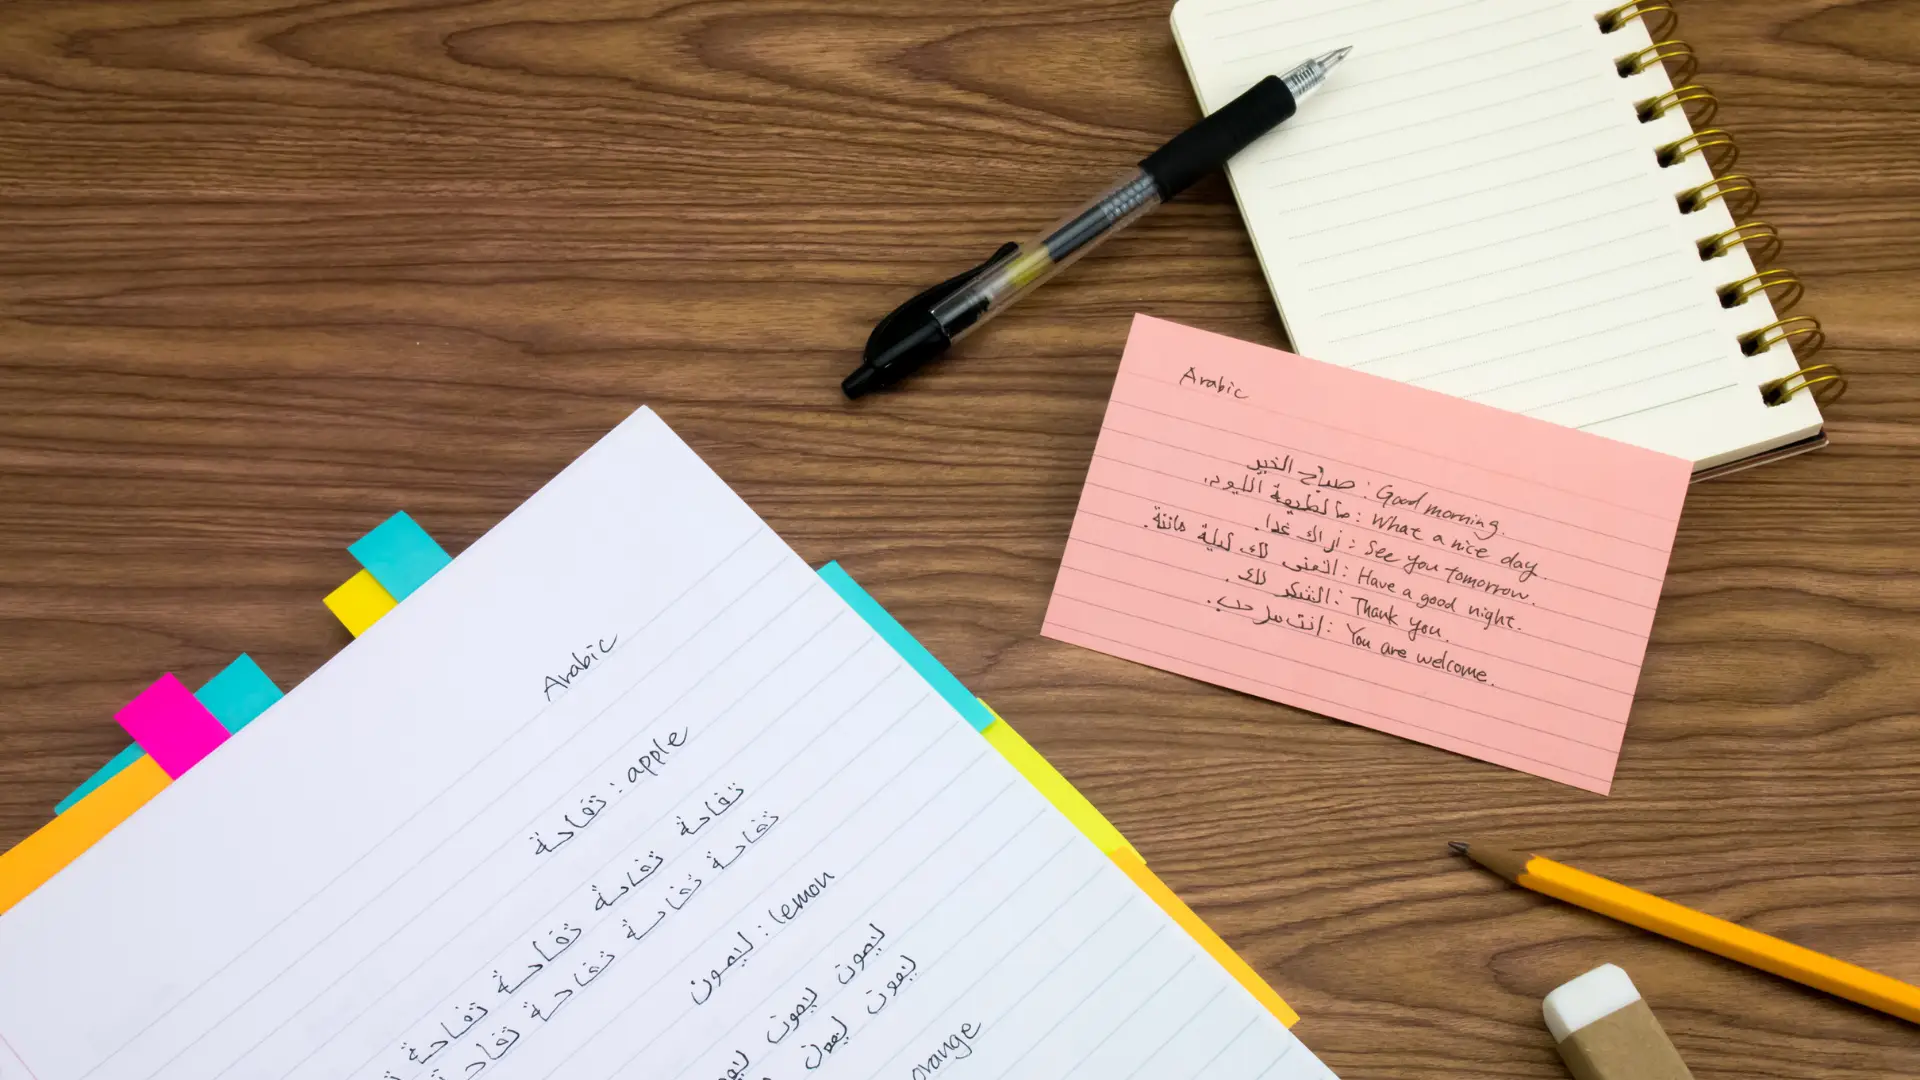 Arabic
تفاحة : apple
تفاحة تفاحة تفاحة تفاحة
تفاحة تفاحة تفاحة تفاحة
ليمون : lemon
ليمون ليمون
ليمون ليمون
orange
Arabic
صباح الخير : Good morning.
ما لطيفة اليوم. : What a nice day.
أراك غدا. : See you tomorrow.
اتمنى لك ليلة هانئة. : Have a good night.
الشكر لك. : Thank you.
انت مرحب. : You are welcome.